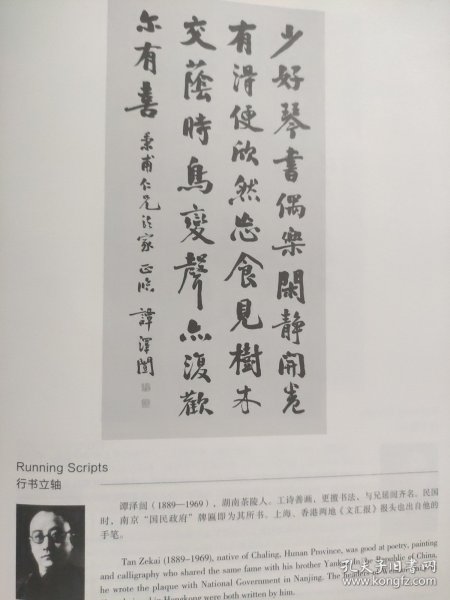 少好琴書偶樂閑靜開卷
有得便欣然忘食見樹木
交蔭時鳥變聲亦復歡
尔有喜
秉甫仁兄法家正临 譚澤闓
Running Scripts
行书立轴
谭泽闿（1889—1969），湖南茶陵人。工诗善画，更擅书法，与兄延闿齐名。民国
时，南京“国民政府”牌匾即为其所书。上海、香港两地《文汇报》报头也出自他的
手笔。
Tan Zekai (1889-1969), native of Chaling, Hunan Province, was good at poetry, painting
and calligraphy who shared the same fame with his brother Yankai. In the Republic of China,
he wrote the plaque with National Government in Nanjing. The headers of
in Hongkong were both written by him.
孔夫子旧书网